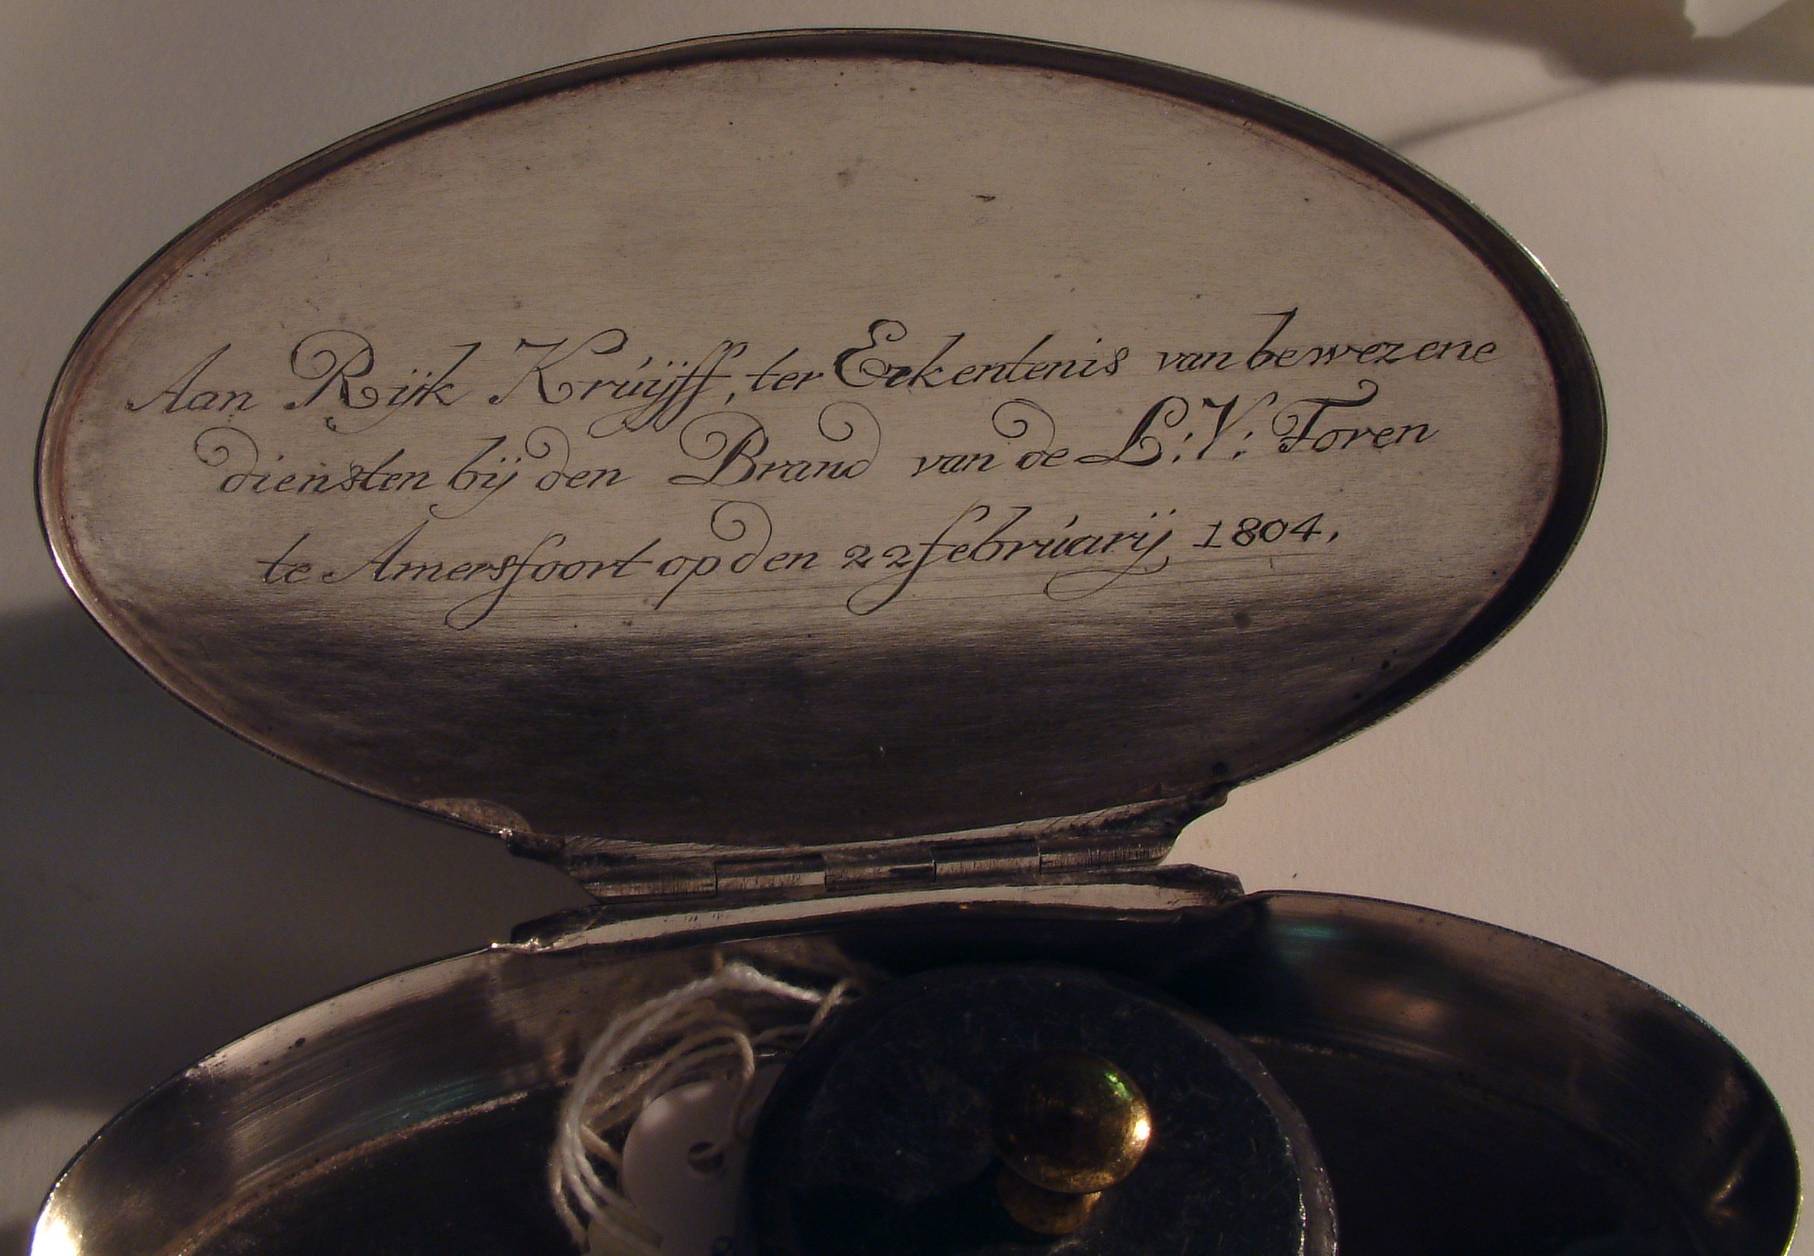 Aan Rijk Krúijff, ter Erkentenis van bewezene
diensten bij den Brand van de L: V: Toren
te Amersfoort op den 22 februúarij 1804.